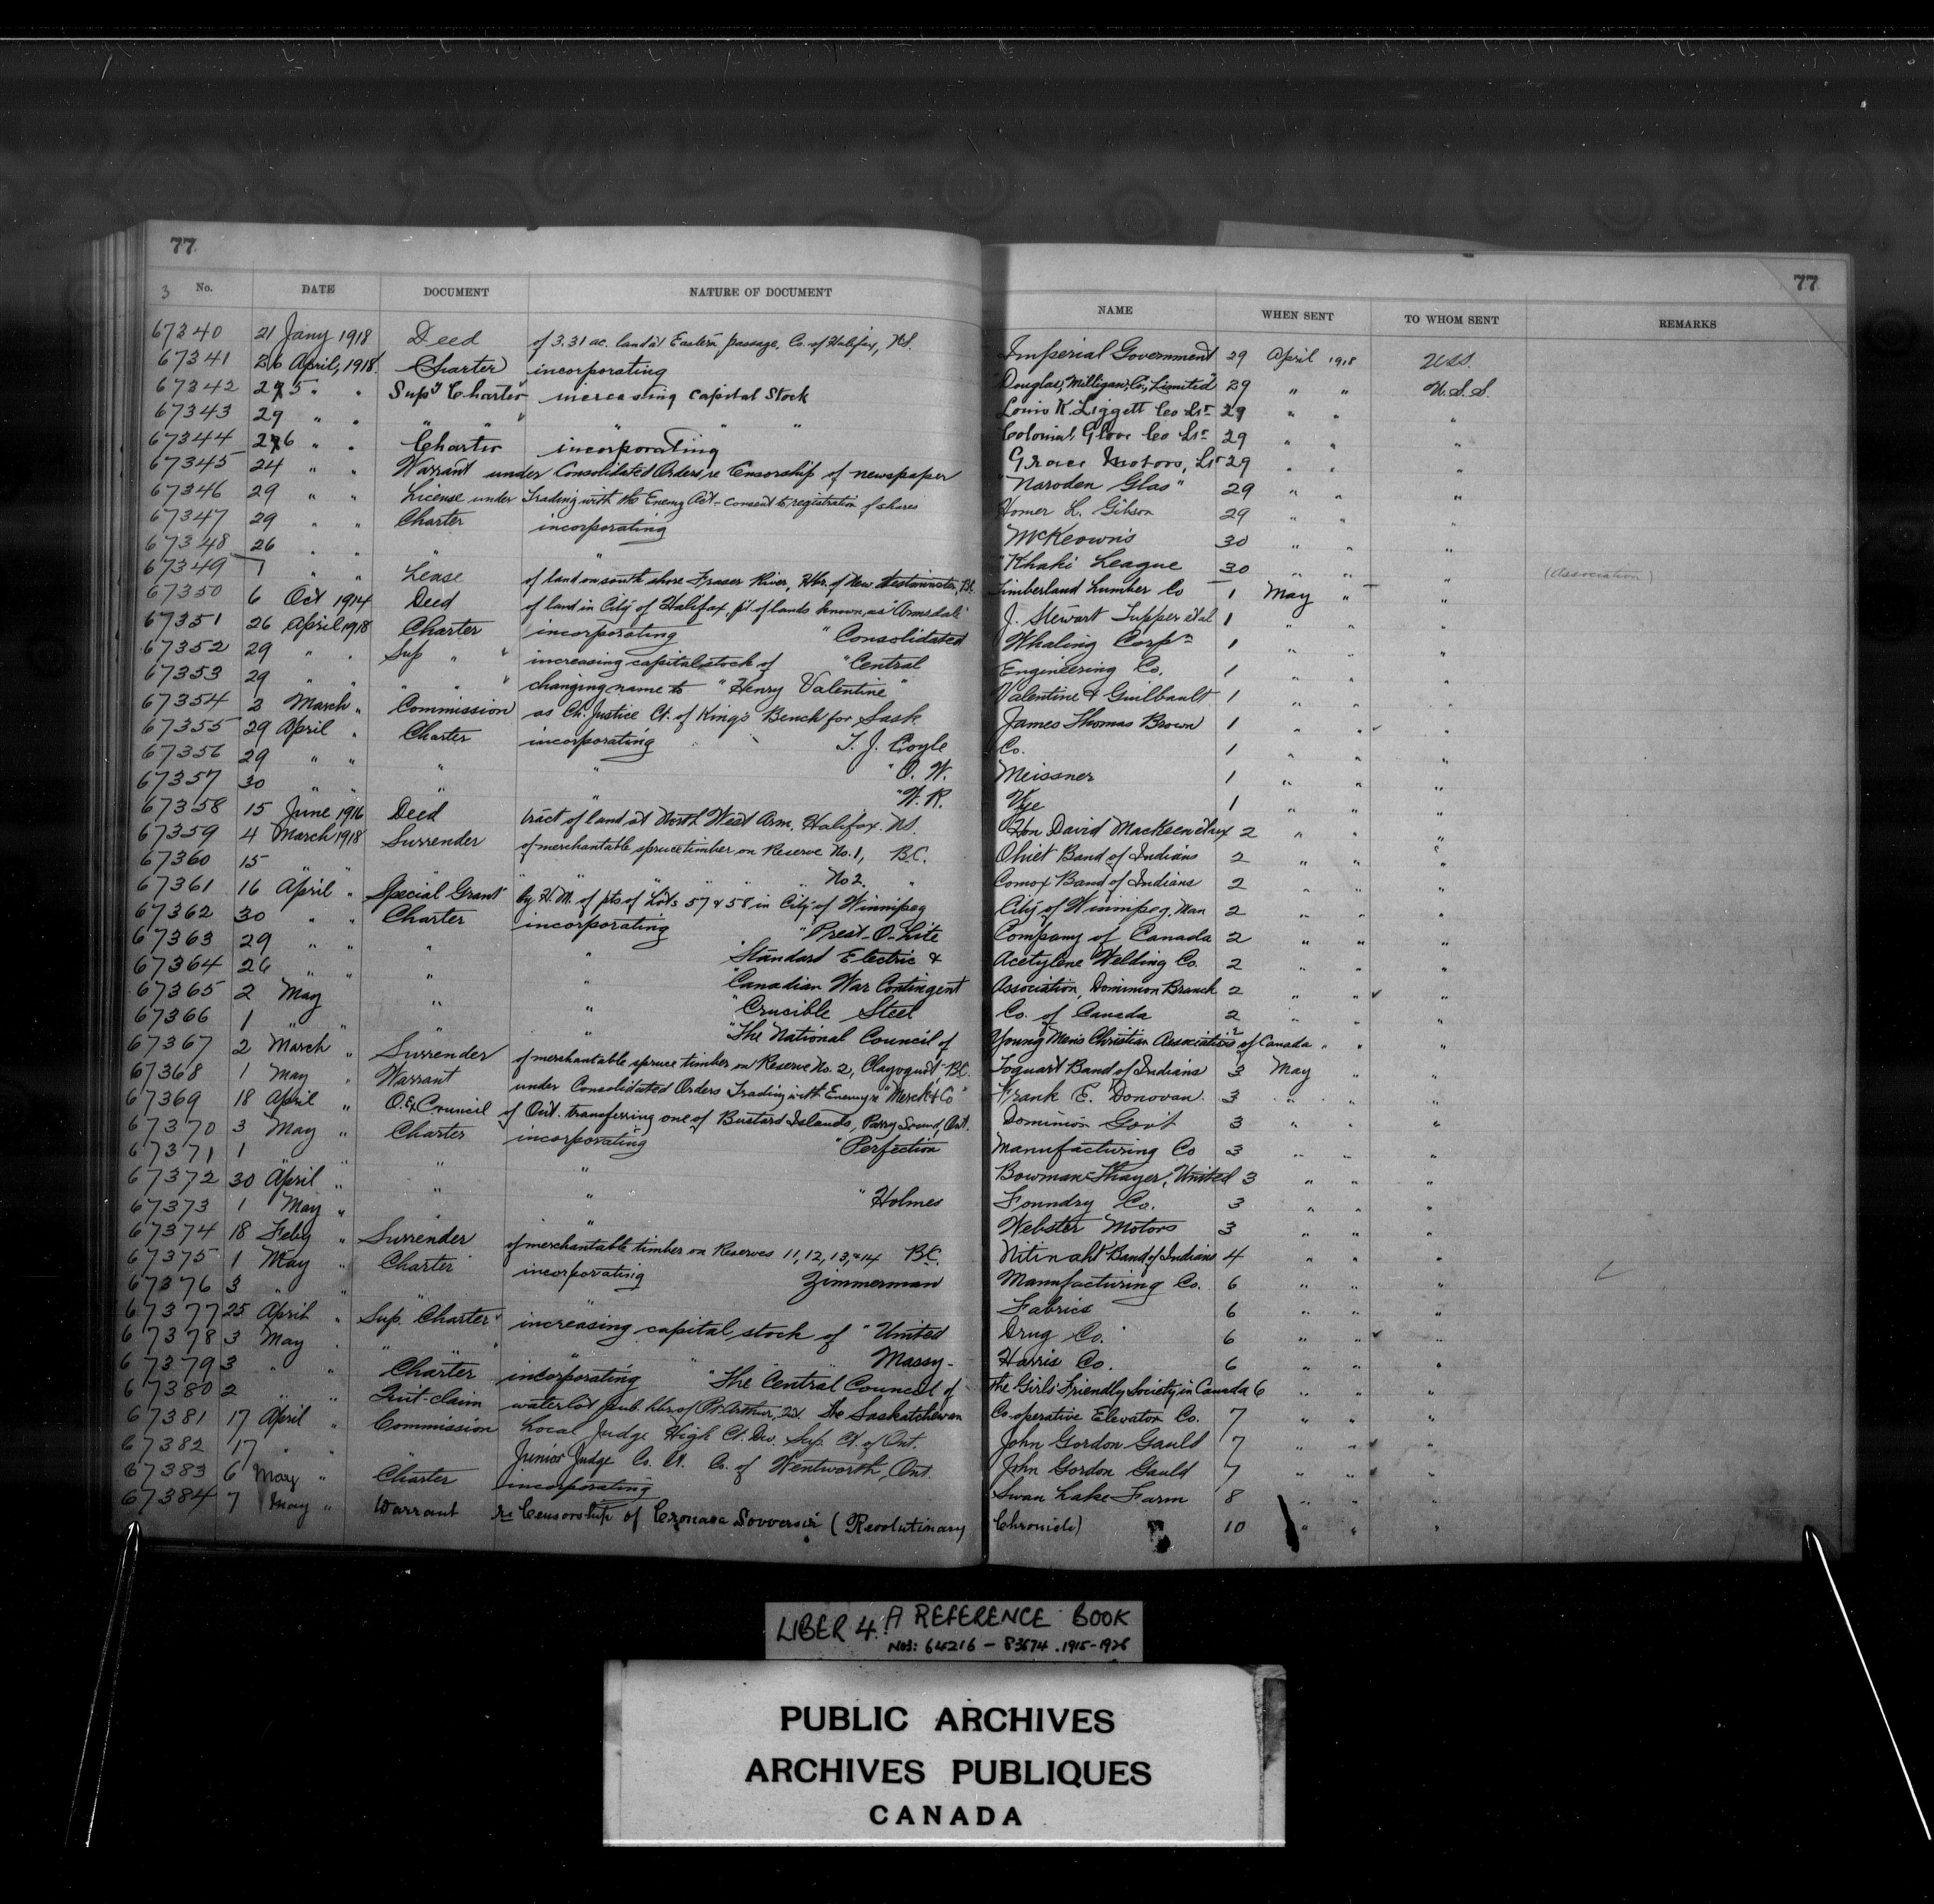 77
77
3 No. DATE DOCUMENT NATURE OF DOCUMENT NAME WHEN SENT TO WHOM SENT REMARKS
67340 21 Jany 1918 Deed of 3.31 ac. land at Eastern passage, Co. of Halifax, N.S. Imperial Government 29 April 1918 U.S.S.
67341 26 April, 1918. Charter incorporating Douglas, Milligan, Co, Limited" 29 " " U.S.S.
67342 25 " " Supy Charter increasing capital Stock Louis K. Liggett Co Ltd 29 " " "
67343 29 " " " " " " " Colonial Glove Co Ltd 29 " " "
67344 26 " " Charter incorporating Grace Motors, Ltd 29 " " "
67345 24 " " Warrant under Consolidated Orders, re Censorship of newspaper "Naroden Glas" 29 " " "
67346 29 " " License under Trading with the Enemy Act - consent to registration of shares Homer L. Gibson 29 " " "
67347 29 " " Charter incorporating McKeown's 30 " " "
67348 26 " " " " "Khaki League 30 " " " (Association)
67349 7 " " Lease of land on south shore Fraser River, Hbr. of New Westminster, B.C. Timberland Lumber Co 1 May " "
67350 6 Oct 1914 Deed of land in City of Halifax, pt. of lands known as "Armdale" J. Stewart Tupper et al 1 " " "
67351 26 April 1918 Charter incorporating "Consolidated Whaling Corpn 1 " " "
67352 29 " " Sup " " increasing capital stock of "Central Engineering Co. 1 " " "
67353 29 " " " " " changing name to "Henry Valentine" Valentine & Guilbault 1 " " "
67354 2 March " Commission as Ch. Justice Ct. of King's Bench for Sask James Thomas Brown 1 " " "
67355 29 April " Charter incorporating T. J. Coyle Co. 1 " " "
67356 29 " " " " "O. W. Meissner 1 " " "
67357 30 " " " " "W. R. Wye 1 " " "
67358 15 June 1916 Deed tract of land at North West Arm, Halifax. N.S. Hon David MacKeen et ux 2 " " "
67359 4 March 1918 Surrender of merchantable spruce timber on Reserve No. 1, B.C. Ohiet Band of Indians 2 " " "
67360 15 " " " " " " " No 2. " Comox Band of Indians 2 " " "
67361 16 April " Special Grant by H.M. of pts of Lots 57 & 58 in City of Winnipeg City of Winnipeg, Man 2 " " "
67362 30 " " Charter incorporating "Prest-O-Lite Company of Canada 2 " " "
67363 29 " " " " "Standard Electric & Acetylene Welding Co. 2 " " "
67364 26 " " " " "Canadian War Contingent Association, Dominion Branch 2 " " "
67365 2 May " " "Crucible Steel Co. of Canada 2 " " "
67366 1 " " " " "The National Council of Young Men's Christian Associations of Canada 2 " " "
67367 2 March " Surrender of merchantable spruce timber on Reserve No. 2, Clayoquot B.C. Toquart Band of Indians 3 May "
67368 1 May " Warrant under Consolidated Orders Trading with Enemy re "Merck & Co" Frank E. Donovan 3 " " "
67369 18 April " O. Ex. Council of Ont. transferring one of Bustard Islands, Parry Sound, Ont. Dominion Govt 3 " " "
67370 3 May " Charter incorporating "Perfection Manufacturing Co 3 " " "
67371 1 " " " " Bowman-Thayer, United 3 " " "
67372 30 April " " " "Holmes Foundry Co. 3 " " "
67373 1 May " " Webster Motors 3 " " "
67374 18 Feby " Surrender of merchantable timber on Reserves 11, 12, 13, & 14 B.C. Nitinaht Band of Indians 4 " " "
67375 1 May " Charter incorporating Zimmerman Manufacturing Co. 6 " " "
67376 3 " " " " Fabrics 6 " " "
67377 25 April " Sup. Charter increasing capital stock of "United Drug Co." 6 " " "
67378 3 May " " " " " Massy- Harris Co. 6 " " "
67379 3 " " Charter incorporating "The Central Council of the Girls' Friendly Society in Canada 6 " " "
67380 2 " " Quit-claim water lot pub. hbr. of Pt Arthur, Ont. The Saskatchewan Co-operative Elevator Co. 7 " " "
67381 17 April " Commission Local Judge High Ct. Div. Sup. Ct. of Ont. John Gordon Gauld 7 " " "
67382 17 " " " Junior Judge Co. Ct. Co. of Wentworth, Ont. John Gordon Gauld 7 " " "
67383 6 May " Charter incorporating Swan Lake Farm 8 " " "
67384 7 May " Warrant re Censorship of Cronaca Sovversiva (Revolutinary Chronicle) 10 " " "
LIBER 4. A REFERENCE BOOK
NOS: 64216 - 83674. 1915-1926
PUBLIC ARCHIVES
ARCHIVES PUBLIQUES
CANADA